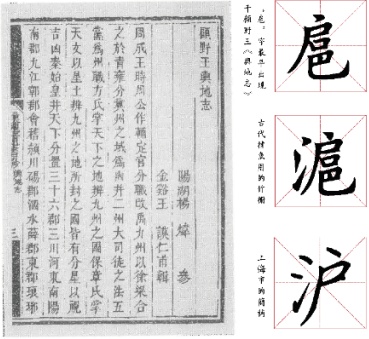 扈
滬
沪
「扈」字最早出現
于顧野王《輿地志》
古代捕魚用的竹柵
上海市的簡稱
顧野王輿地志
陽湖楊 煒 參
金谿王 謨仁甫輯
周成王時周公作輔定官分職改禹九州以徐梁合
之於青雍分冀州之域為幽并二州大司徒之法五
黨為州職方氏掌天下之地辨九州之國保章氏掌
天文以星土辨九州之地所封之國皆有分星以觀
吉凶秦始皇并天下分置三十六郡三川河東南陽
南郡九江鄣郡會稽潁川碭郡泗水薛郡東郡琅琊